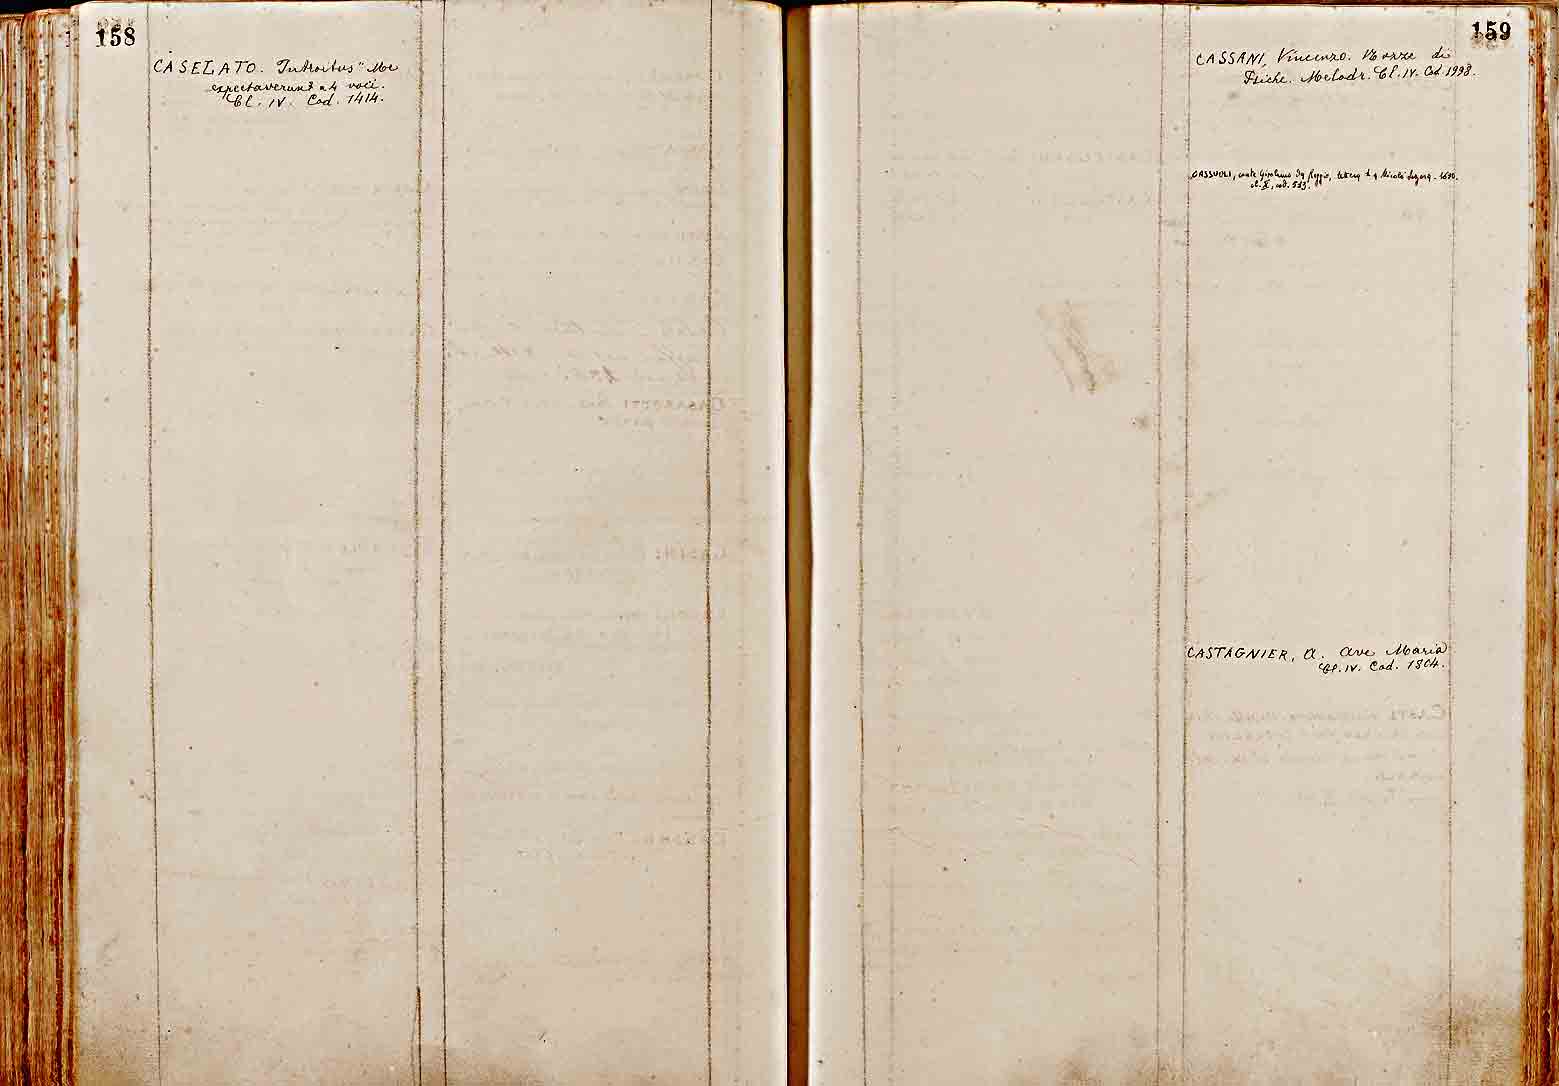 158
CASELATO. Introitus "Me
expectaverunt a 4 voci.
Cl. IV. Cod. 1414.
159
CASSANI, Vincenzo. Nozze di
Psiche. Melodr. Cl. IV. Cod. 1998.
CASSUOLI, conte Girolamo da Reggio, lettera a 1670.
cl. X, cod.
CASTAGNIER, A. Ave Maria
Cl. IV. Cod. 1804.